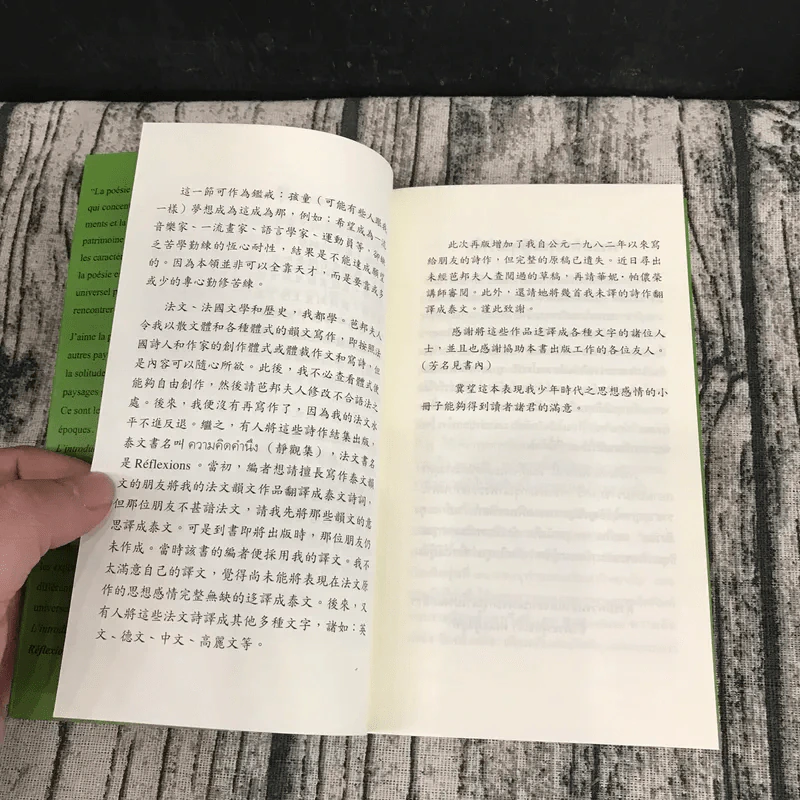 "La poésie
qui concen
ments et la
patrimoine
les caracter
la poésie e
universel p
rencontrer
J'aime la p
autres pay
la solitud
paysages
Ce sont le
époques.
L'introdu
différ
univers
L'introd
Réflexion
這一節可作為鑑戒：孩童（可能有些人跟我
一樣）夢想成為這成為那，例如：希望成為一流
音樂家、一流畫家、語言學家、運動員等，卻缺
乏苦學勤練的恆心耐性，結果是不能達成願望
的。因為本領並非可以全靠天才，而是要靠或多
或少的專心勤修苦練。
法文、法國文學和歷史，我都學。芭邦夫人
令我以散文體和各種體式的韻文寫作，即按照法
國詩人和作家的創作體式或體裁作文和寫詩，但
是內容可以隨心所欲。此後，我不必查看體式便
能夠自由創作，然後請芭邦夫人修改不合語法之
處。後來，我便沒有再寫作了，因為我的法文水
平不進反退。繼之，有人將這些詩作結集出版，
泰文書名叫 ความคิดคำนึง（靜觀集），法文書名
是 Réflexions 。當初，編者想請擅長寫作泰文韻
文的朋友將我的法文韻文作品翻譯成泰文詩詞，
但那位朋友不甚諳法文，請我先將那些韻文的意
思譯成泰文。可是到書即將出版時，那位朋友仍
未作成。當時該書的編者便採用我的譯文。我不
太滿意自己的譯文，覺得尚未能將表現在法文原
作的思想感情完整無缺的迻譯成泰文。後來，又
有人將這些法文詩譯成其他多種文字，諸如：英
文、德文、中文、高麗文等。
此次再版增加了我自公元一九八二年以來寫
給朋友的詩作，但完整的原稿已遺失。近日尋出
未經芭邦夫人查閱過的草稿，再請華妮·帕儂榮
講師審閱。此外，還請她將幾首我未譯的詩作翻
譯成泰文。謹此致謝。
感謝將這些作品迻譯成各種文字的諸位人
士，並且也感謝協助本書出版工作的各位友人。
（芳名見書內）
冀望這本表現我少年時代之思想感情的小
冊子能夠得到讀者諸君的滿意。